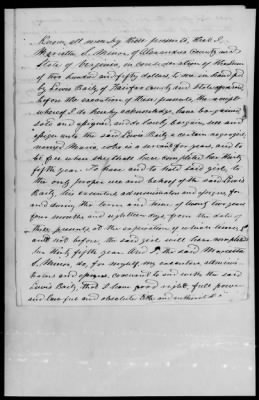 Know all men by these presents, that I
Marietta S. Minor of Alexandria County and
State of Virginia, in consideration of the sum
of two hundred and fifty dollars to me in hand paid
by Lewis Baily of Fairfax County and State aforesaid
before the execution of these presents, the receipt
whereof I do hereby acknowledge, have bargained
sold and assigned, and do hereby bargain sell and
assign unto the said Lewis Baily a certain negro girl
named Maria, who is a servant for years, and to
be free when she shall have completed her thirty
fifth year. To have and to hold said girl, to
the only proper use and behoof of the said Lewis
Baily, his executors administrators and assigns for
and during the term and time of twenty two years
four months and eighteen days from the date of
these presents, at the expiration of which time &
and not before, the said girl will have completed
her thirty fifth year. And I, the said Marietta
S. Minor, do, for myself, my executors, adminis-
trators and assigns, covenant to and with the said
Lewis Baily, that I have good right, full power
and lawful and absolute